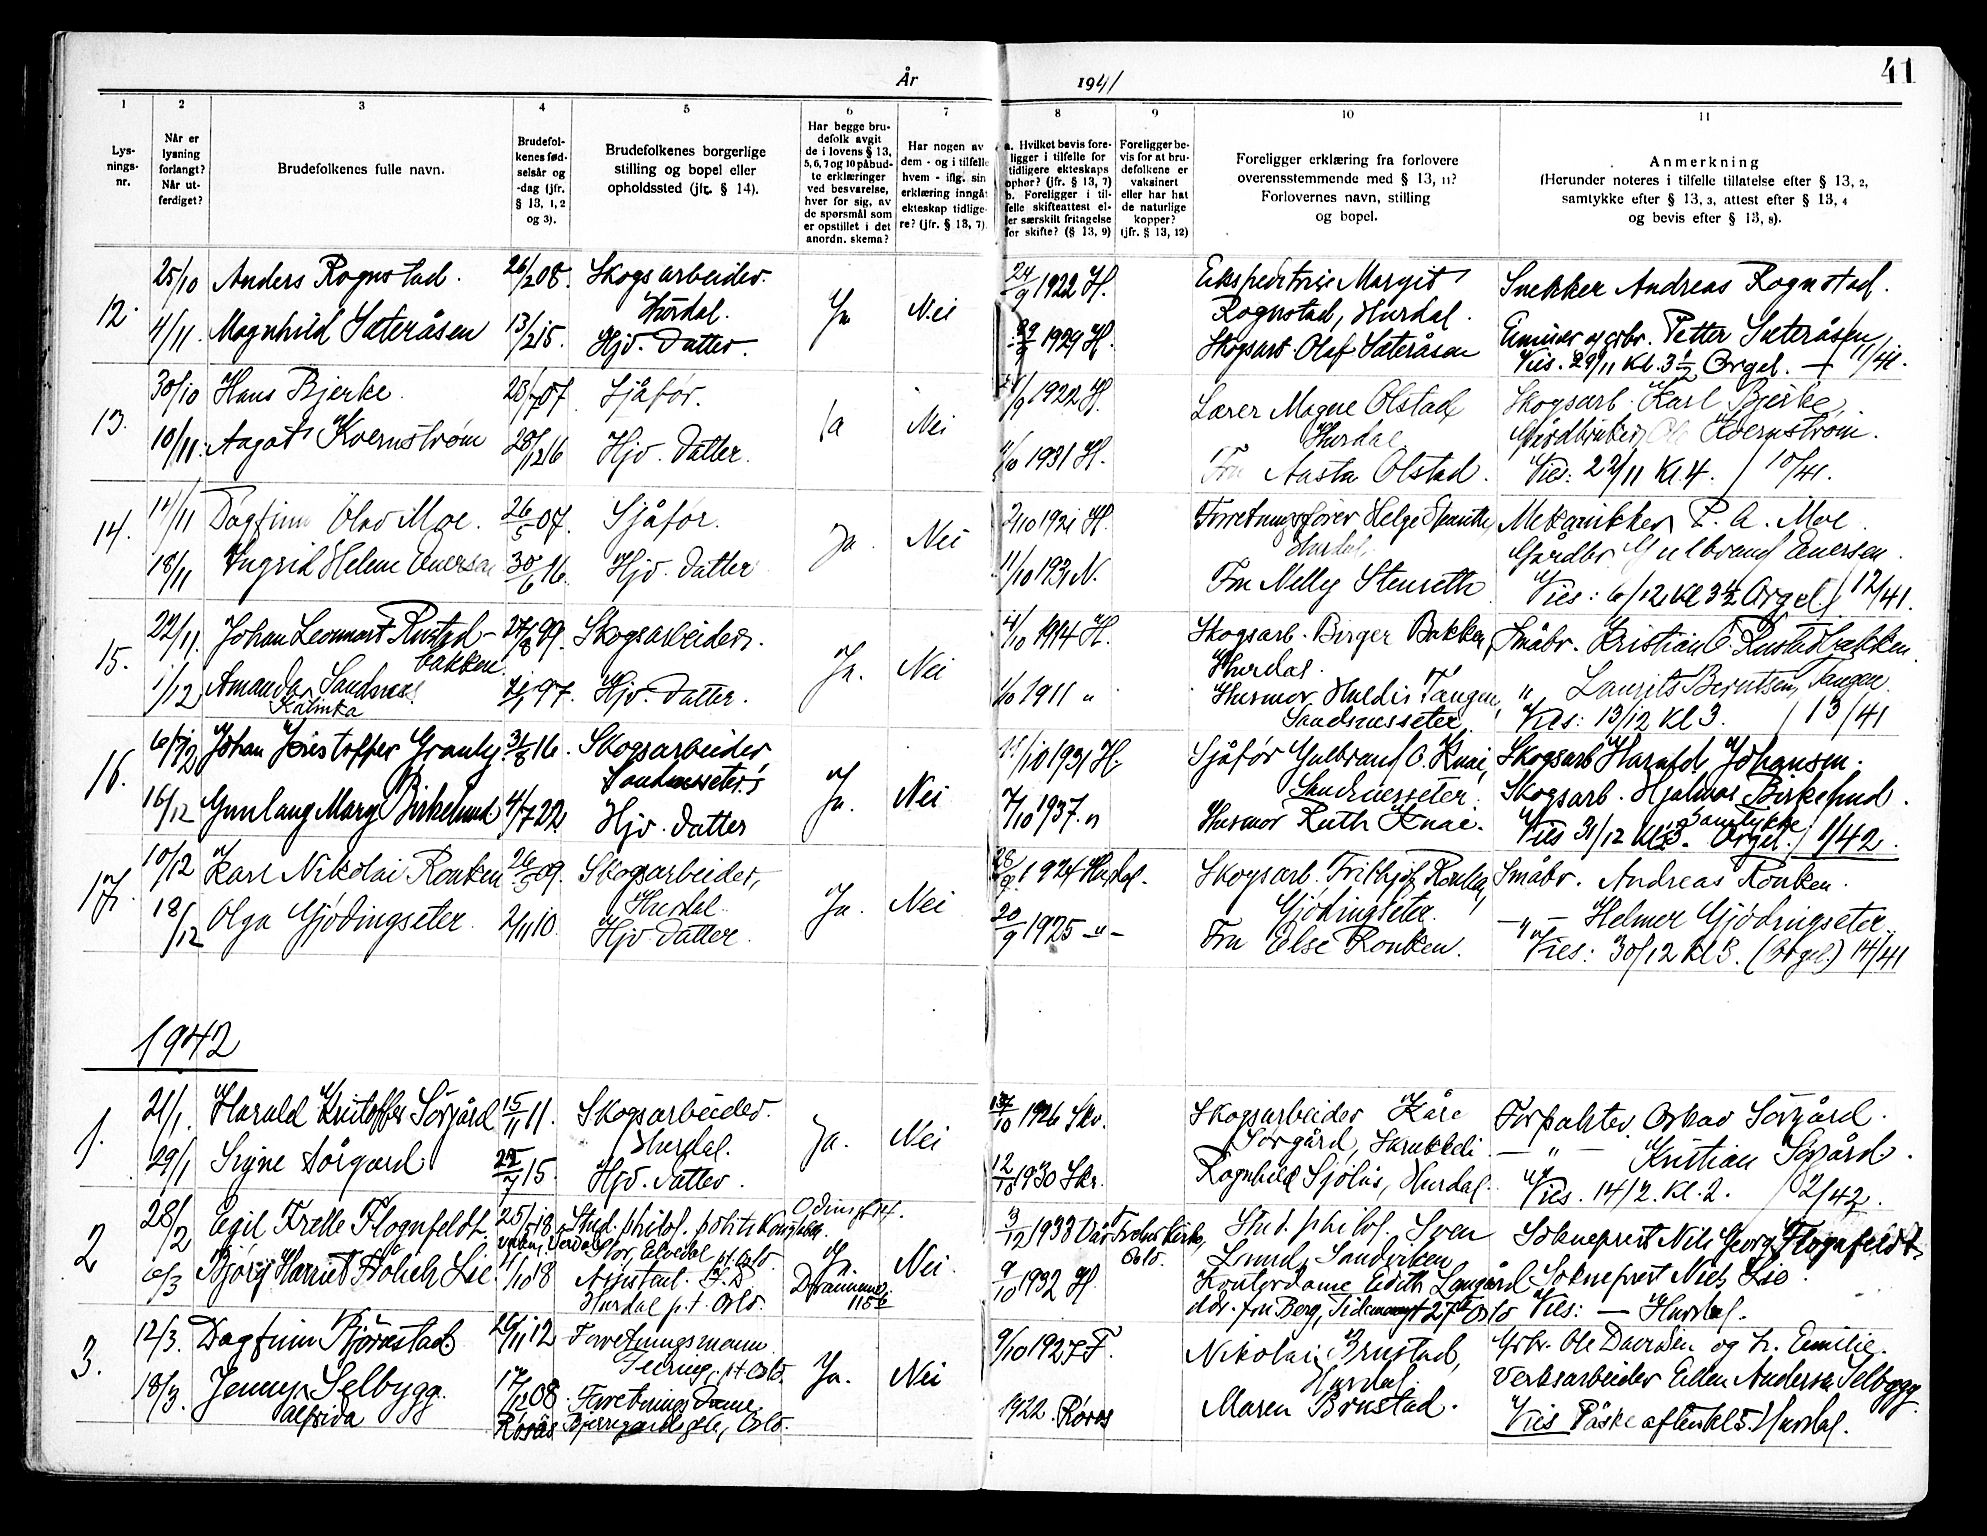 41
År 1941
1 2 3 4 5 6 7 8 9 10 11
Lys-
nings-
nr.
Når er
lysning
forlangt?
Når ut-
ferdiget?
Brudefolkenes fulle navn.
Brudefol-
kenes fød-
selsår og
-dag (jfr.
§ 13, 1, 2
og 3).
Brudefolkenes borgerlige
stilling og bopel eller
opholdssted (jfr. § 14).
Har begge bru-
defolk avgit
de i lovens § 13,
5, 6, 7 og 10 påbud-
te erklæringer
ved besvarelse,
hver for sig, av
de spørsmål som
er opstillet i det
anordn. skema?
Har nogen av
dem - og i tilfelle
hvem - iflg. sin
erklæring inngåt
ekteskap tidlige-
re? (jfr. § 13, 7).
a. Hvilket bevis fore-
ligger i tilfelle for
tidligere ekteskaps
ophør? (jfr. § 13, 7)
b. Foreligger i til-
felle skifteattest el-
ler særskilt fritagelse
for skifte? (§ 13, 9)
Foreligger be-
vis for at bru-
defolkene er
vaksinert
eller har hat
de naturlige
kopper?
(jfr. § 13, 12)
Foreligger erklæring fra forlovere
overensstemmende med § 13, 11?
Forlovernes navn, stilling
og bopel.
Anmerkning
(Herunder noteres i tilfelle tillatelse efter § 13, 2,
samtykke efter § 13, 3, attest efter § 13, 4
og bevis efter § 13, 8).
12.
25/10 Anders Rognstad. 26/2 08. Skogsarbeider. Hurdal.
4/11 Magnhild Sæteråsen 13/2 15. Hjv. datter.
Ja Nei
24/9 1922 H.
29/9 1929 H.
Ekspeditrise Margit
Rognstad, Hurdal.
Skogsarb Olaf Sæteråsen
Snekker Andreas Rognstad.
Petter Sæteråsen
Vies. 29/11 Kl. 3 1/2 Orgel. 11/41.
13.
30/10 Hans Bjerke 23/7 07. Sjåfør.
10/11. Aagot Kvernstrøm 28/12 16 Hjv. datter.
Ja Nei
/9 1922 H.
11/10 1931 H.
Lærer Magne Olstad
Hurdal
Fru Aasta Olstad.
Skogsarb. Karl Bjerke,
Gårdbruker Ole Kvernstrøm.
Vies: 22/11 Kl. 4. / 10/41.
14.
14/11 Dagfinn Olav Moe. 26/5 07. Sjåfør.
18/11 Ingrid Helene Enersen 30/6 16. Hjv. datter
Ja. Nei
2/10 1921 H.
11/10 1931 N.
Forretningsfører Helge Stenseth,
Hurdal.
Fru Nelly Stenseth
Mekanikker P. A. Moe
Gårdbr Gulbrand Enersen.
Vies: 6/12 Kl 3 1/2 Orgel / 12/41.
15.
22/11. Johan Leonnart Rustad-
bakken 27/8 99. Skogsarbeider.
1/12 Amanda Sandsnes
Kalinka 97. Hjv. datter.
Ja. Nei
4/10 1914 H.
1/10 1911 "
Skogsarb. Birger Bakken,
Hurdal.
Husmor Huldis Tangen,
Sandsnesseter
Småbr. Kristian O. Rustadbakken.
" Laurits Berntsen, Tangen.
Vies: 13/12 Kl 3. / 13/41
16.
6/12 Johan Kristoffer Granli 31/8 16. Skogsarbeider
Sandsnesseter.
16/12 Gunlaug Mary Birkelund 4/7 22 Hjv. datter
Ja. Nei
11/10 1931 H.
7/10 1937. "
Sjåfør Gulbrand O. Knai,
Sandsnesseter.
Husmor Ruth Knai.
Skogsarb Harald Johansen.
Skogsarb. Hjalmar Birkelund.
Samtykke
Vies 31/12 Kl 3. Orgel. / 1/42.
17.
10/12 Karl Nikolai Ronken 26/5 09. Skogsarbeider,
Hurdal.
18/12 Olga Gjødingseter. 2/11 10. Hjv. datter.
Ja. Nei
28/9. 1924 Hurdal.
20/9 1925 -"-
Skogsarb. Fridtjof Ronken,
Gjødingseter.
Fru Else Ronken.
Småbr. Andreas Ronken.
-"- Helmer Gjødingseter.
Vies: 30/12 Kl 3. (Orgel.) 14/41
1942
1.
21/1. Harald Kristoffer Sørgård 15/11 11. Skogsarbeider.
Hurdal.
29/1 Signe Sørgård 22/7 15. Hjv. datter.
Ja. Nei
/10 1926 Skr.
12/10 1930 Skr.
Skogsarbeider Kåre
Sørgård, Skrukkeli.
Ragnhild Sjølis, Hurdal.
Forpakter Oskar Sørgård.
-"- Kristian Sørgård.
Vies. 14/2. Kl. 2. / 2/42.
2
28/2 Egil Trette Flognfeldt. 25/5 18 Stud. philol. politi
Elvedal pt. Oslo.
6/3 Bjørg Harriet Frölich Lie. 4/10 18 Hurdal p.t. Oslo.
Odins gt 14.
Ja.
Drammensv.
115 b
Nei
3/12 1933 Vår Frelsers kirke,
Oslo.
9/10 1932 H.
Stud. philol. Sven
Lund, Sandviken
Kontordame Edith Langård
adr. fru Berg, Tidemandsgt 27 Oslo
Sokneprest Nils Georg Flognfeldt.
Sokneprest Niels Lie.
Vies: — Hurdal.
3.
12/3. Dagfinn Bjørnstad 26/11 12 Forretningsmann
Feiring, pt Oslo.
18/3 Jenny Selbygg.
Alfrida 17/12 08. Forretningsdame.
Røros Bjerregårds gt., Oslo.
Ja. Nei
9/10 1927 F.
1922. Røros
Nikolai Brustad,
Hurdal.
Maren Brustad.
Gbr. Ole Davidsen og h. Emilie.
Verksarbeider Eden Andersen Selbygg
Vies Påskeaften kl 5. Hurdal.